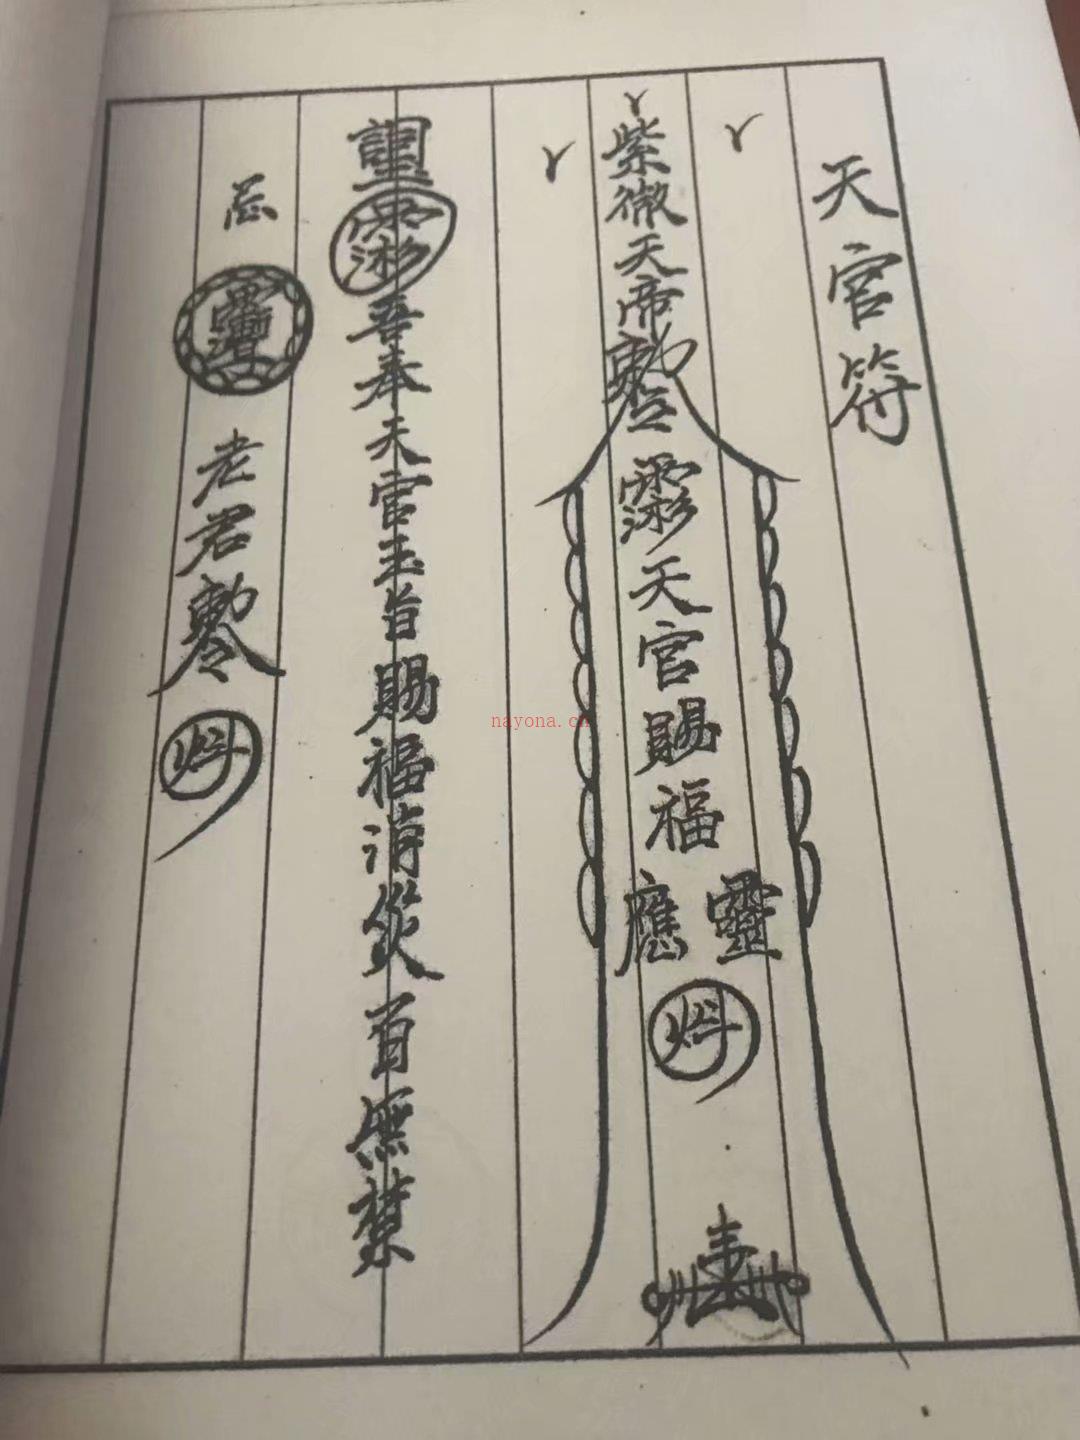 天官符
紫微天帝敕
天官賜福
靈應
吾奉天官玉旨賜福消災百無禁
忌
老君敕令
nayona.cn